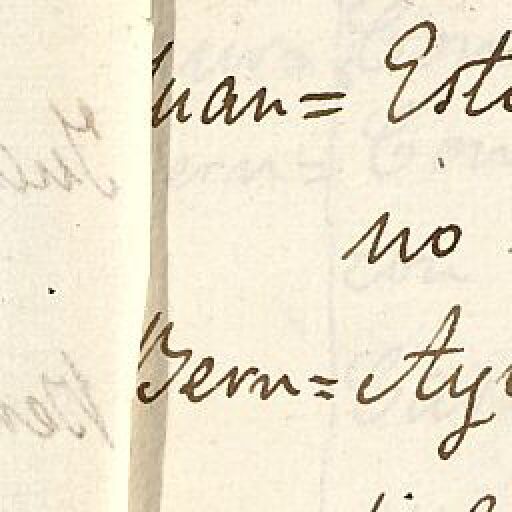 Juan= Est
no
Bern= Ay